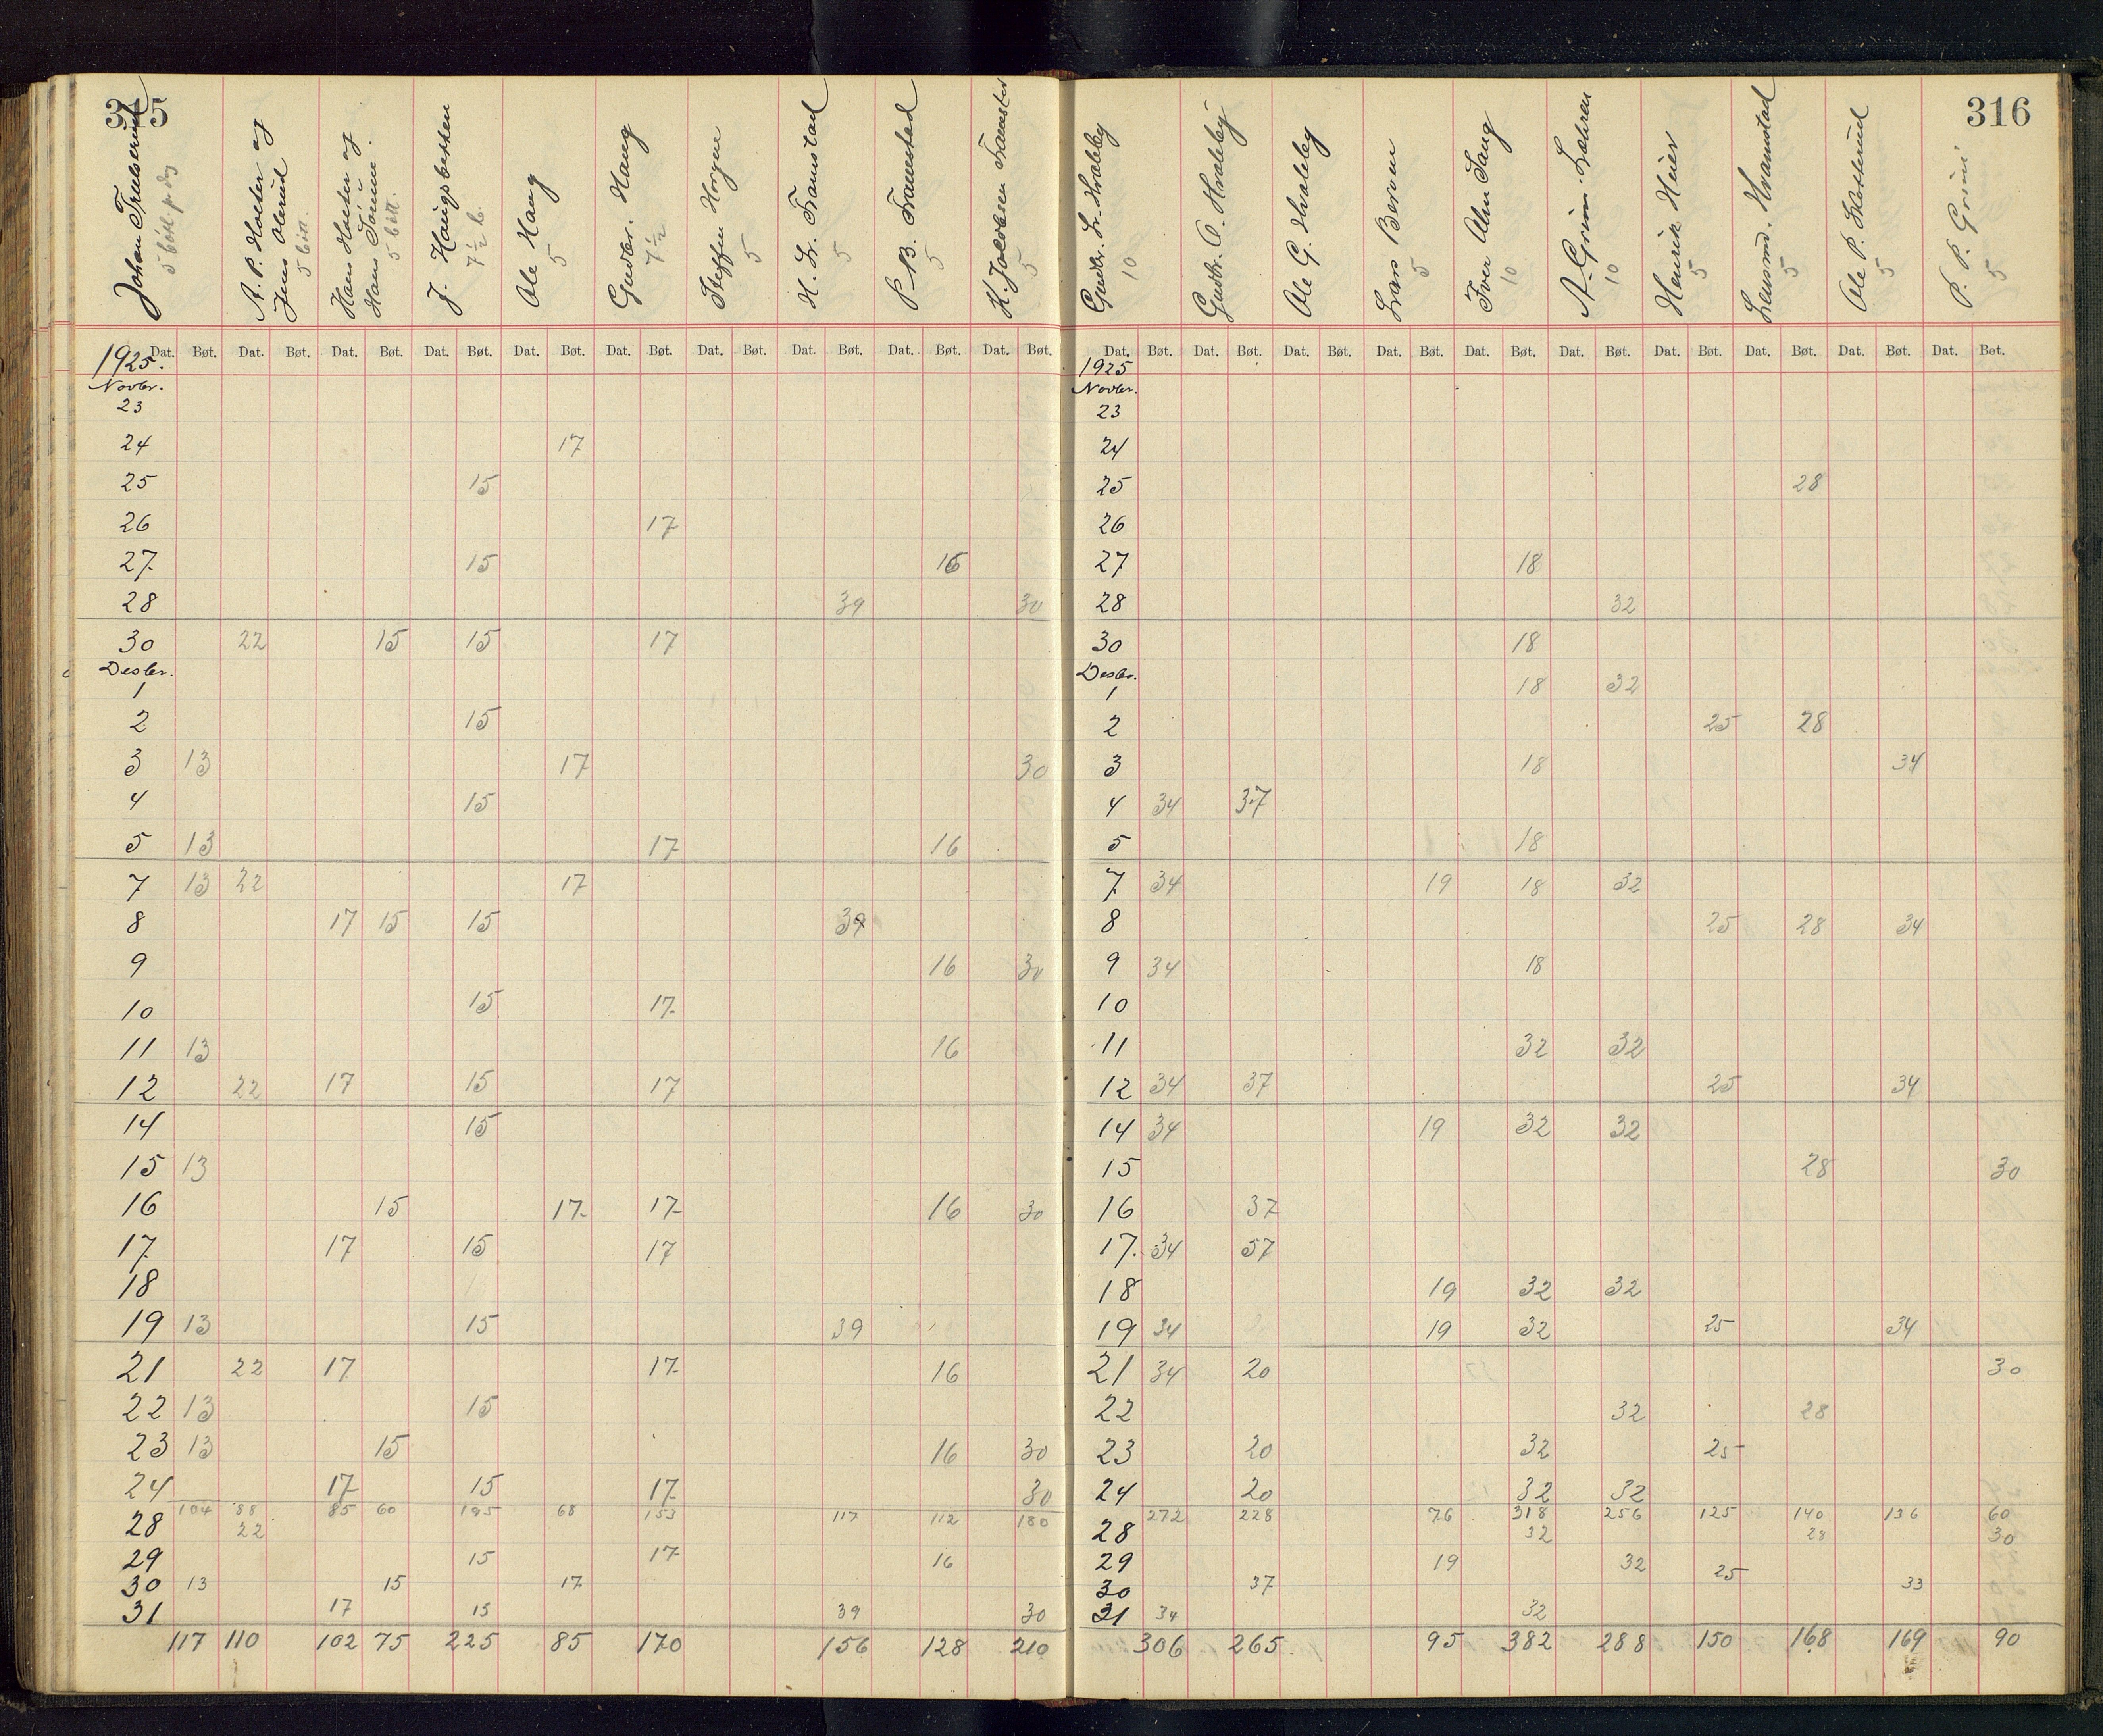 315
316
Johan Trulserud
5 bøtt. pr dag
A. P. Holter og
Jens Olerud
5 bøtt.
Hans Holter og
Hans
5 bøtt.
J. Haugsbakken
7½ b.
Ole Haug
5
Gudbr. Haug
7½
Steffen Horgen
5
H. Fr. Tramstad
5
P. B. Tramstad
5
K. Jacobsen Tramstad
5
Gudbr. Hvaleby
10
Gudbr. O. Hvaleby
Ole G. Hvaleby
Lars Berven
5
Iver Alm Haug
10
A. Grini
10
Henrik Heier
5
Hvamstad
5
Ole P.
5
P. P. Grini
5
Dat. Bøt. Dat. Bøt. Dat. Bøt. Dat. Bøt. Dat. Bøt. Dat. Bøt. Dat. Bøt. Dat. Bøt. Dat. Bøt. Dat. Bøt.
Dat. Bøt. Dat. Bøt. Dat. Bøt. Dat. Bøt. Dat. Bøt. Dat. Bøt. Dat. Bøt. Dat. Bøt. Dat. Bøt. Dat. Bøt.
1925.
Novbr.
23
24 17
25 15
26 17
27 15 16
28 39 30
30 22 15 15 17
Desbr.
1
2 15
3 13 17 30
4 15
5 13 17 16
7 13 22 17
8 17 15 15 39
9 16 30
10 15 17
11 13 16
12 22 17 15 17
14 15
15 13
16 15 17 17 16 30
17 17 15 17
18
19 13 15 39
21 22 17 17 16
22 13 15
23 13 15 16 30
24 17 15 17 30
104 88 85 60 195 68 153 117 112 180
28 22
29 15 17 16
30 13 15 17
31 17 15 39 30
117 110 102 75 225 85 170 156 128 210
1925
Novbr.
23
24
25 28
26
27 18
28 32
30 18
Desbr.
1 18 32
2 25 28
3 18 34
4 34 37
5 18
7 34 19 18 32
8 25 28 34
9 34 18
10
11 32 32
12 34 37 25 34
14 34 19 32 32
15 28 30
16 37
17. 34 57
18 19 32 32
19 34 19 32 25 34
21 34 20 30
22 32 28
23 20 32 25
24 20 32 32
272 228 76 318 256 125 140 136 60
28 32 28 30
29 19 32 25
30 37 33
31 34 32
306 265 95 382 288 150 168 169 90